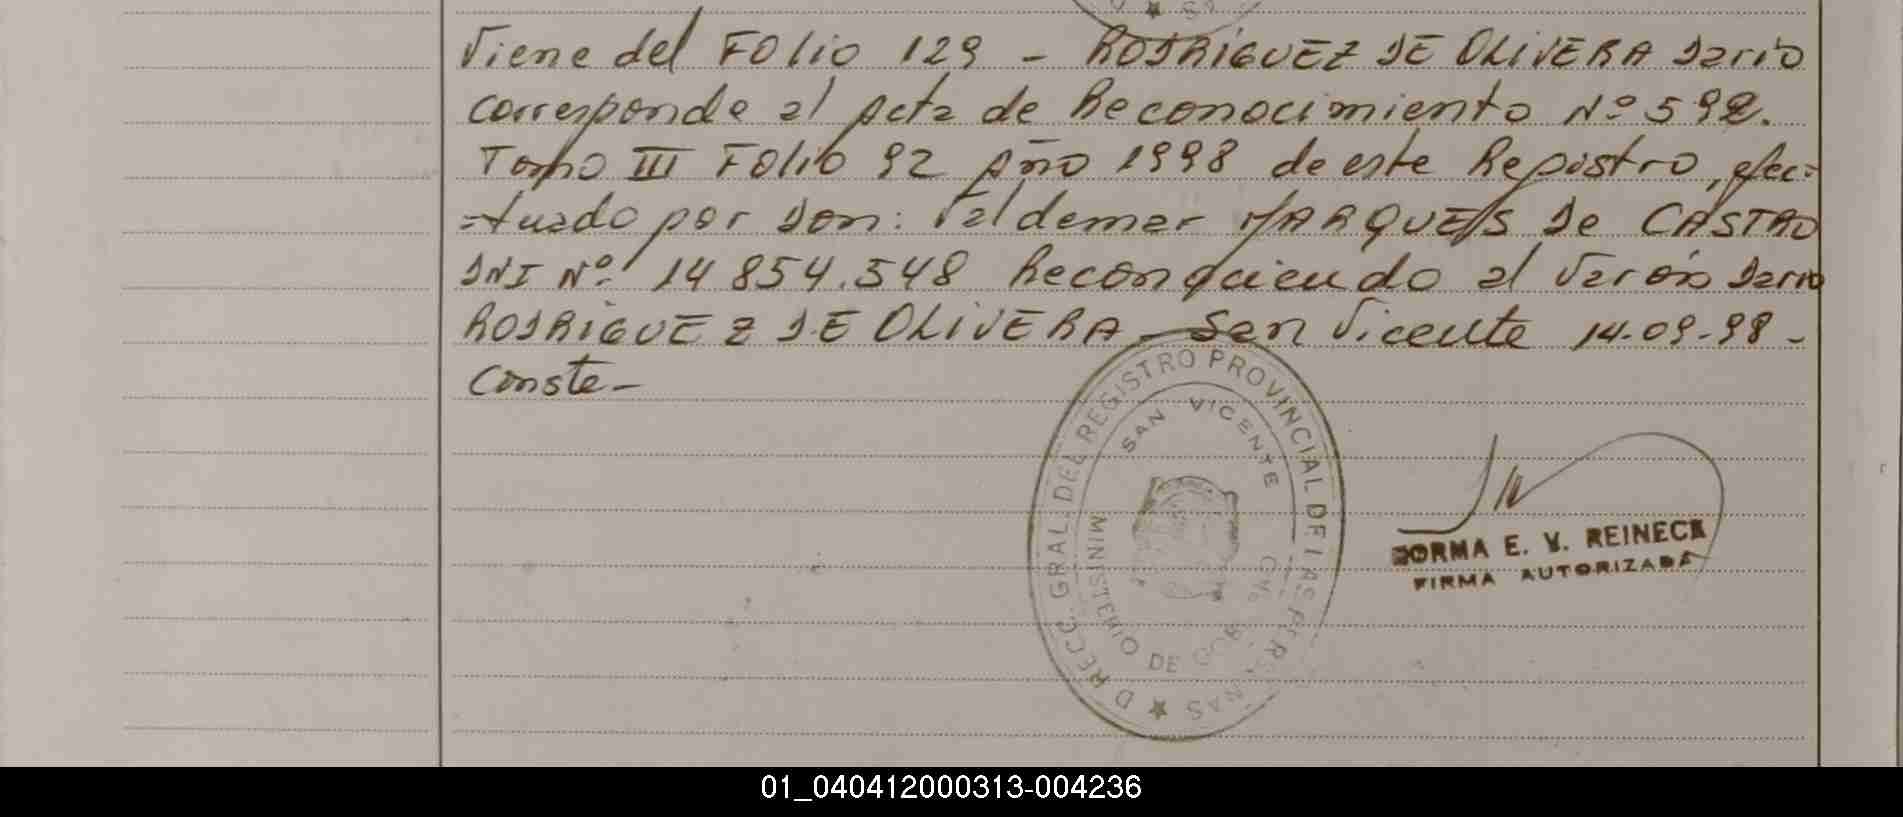 Viene del FOLIO 129 - RODRIGUEZ DE OLIVERA Dario
corresponde al Acta de Reconocimiento Nº 592.
Tomo III Folio 92 Año 1998 de este Registro, efec=
=tuado por Don: Valdemar MARQUES De CASTRO
DNI Nº 14 854.548 Reconociendo al Varón Dario
RODRIGUEZ DE OLIVERA - San Vicente 14-09-98 -
Conste -
RECC. GRAL. DEL REGISTRO PROVINCIAL DE LAS PERSONAS
SAN VICENTE
MINISTERIO DE GOB.
NORMA E. V. REINECK
FIRMA AUTORIZADA
01_040412000313-004236